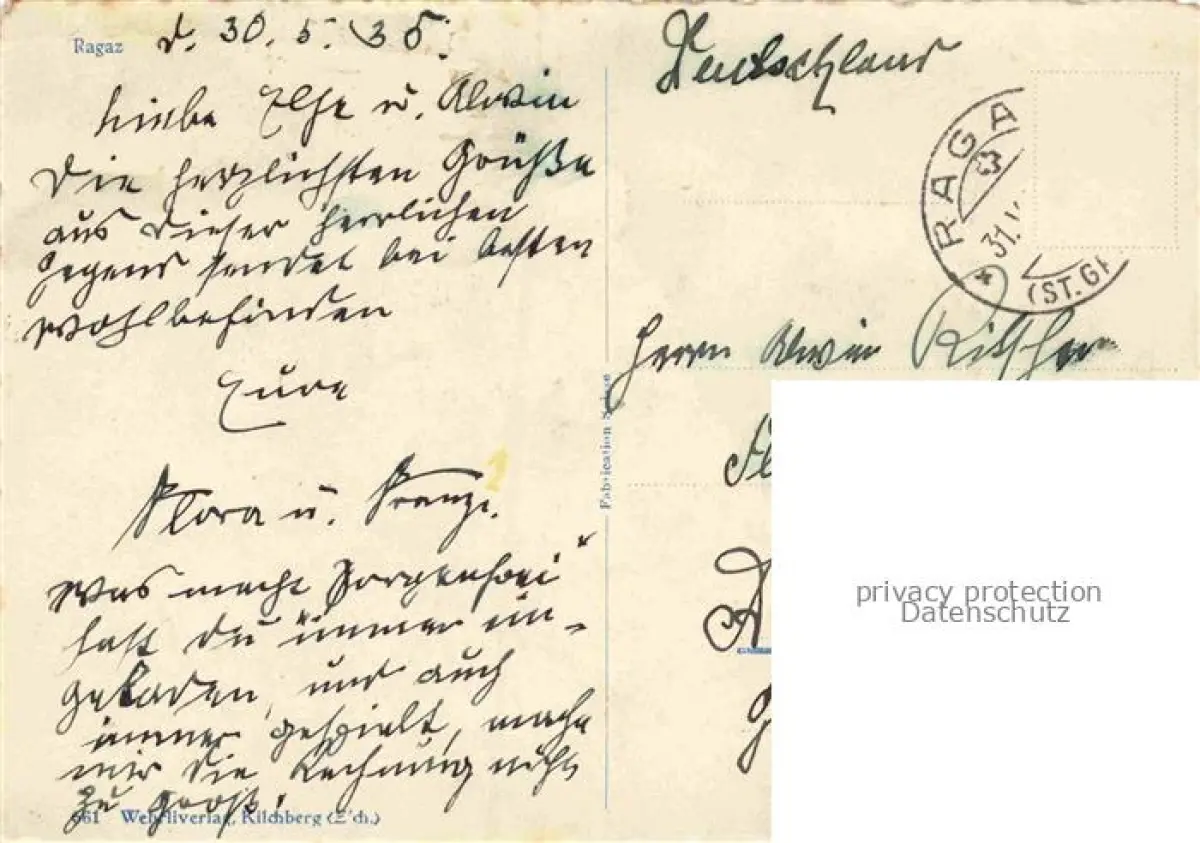 Ragaz d. 30. 5. 35.
Liebe Else u. Alwin
Die herzlichsten Grüße
aus dieser herrlichen
Gegend sendet bei besten
Wohlbefinden
Eure
Flora u. Franzi.
Was macht "Sorgenfrei"
hast Du immer ein-
geladen, und auch
immer gespielt, mache
mir die Rechnung nicht
zu groß!
661 Wehrliverlag, Kilchberg (Zch.)
Fabrication Suisse
Deutschland
RAGAZ
31. V
(ST. G
Herrn Alwin
privacy protection
Datenschutz